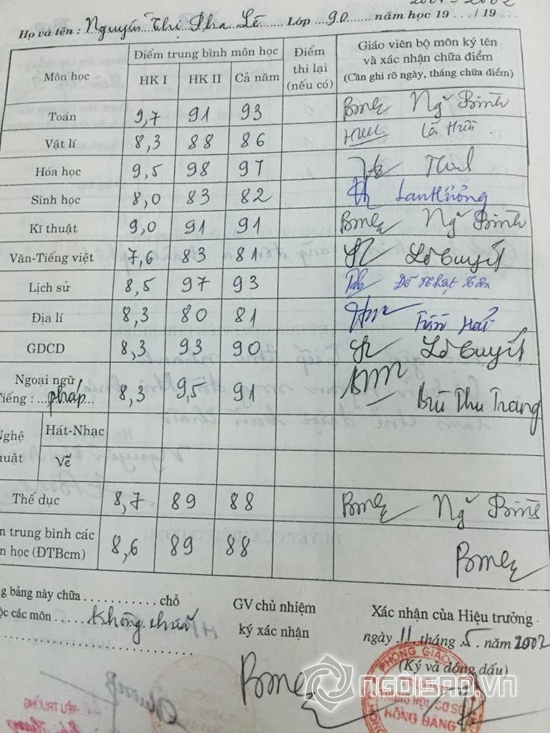 2001 - 2002
Họ và tên : Nguyễn Thị Pha Lê Lớp 9D năm học 19.../19...
Môn học Điểm trung bình môn học Điểm thi lại (nếu có) Giáo viên bộ môn ký tên và xác nhận chữa điểm (Cần ghi rõ ngày, tháng chữa điểm)
HK I HK II Cả năm
Toán 9,7 91 93 Ng Bình
Vật lí 8,3 88 86
Hóa học 9,5 98 97
Sinh học 8,0 83 82 Lan Hương
Kĩ thuật 9,0 91 91 Ng Bình
Văn-Tiếng việt 7,6 83 81 Lê Tuyết
Lịch sử 8,5 97 93 Đỗ Nhật Tân
Địa lí 8,3 80 81 Trần
GDCD 8,3 93 90 Lê Tuyết
Ngoại ngữ
Tiếng : pháp 8,3 9,5 91 Bùi Thu Trang
Nghệ thuật Hát-Nhạc
Vẽ
Thể dục 8,7 89 88 Ng Bình
trung bình các môn học (ĐTBcm) 8,6 89 88
bảng này chữa ........ chỗ
các môn . không chữa
GV chủ nhiệm
ký xác nhận
Xác nhận của Hiệu trưởng
ngày 11 tháng 5 năm 2002
(Ký và đóng dấu)
PHÒNG GIÁO
HỒNG BÀNG
NGOISAO.VN